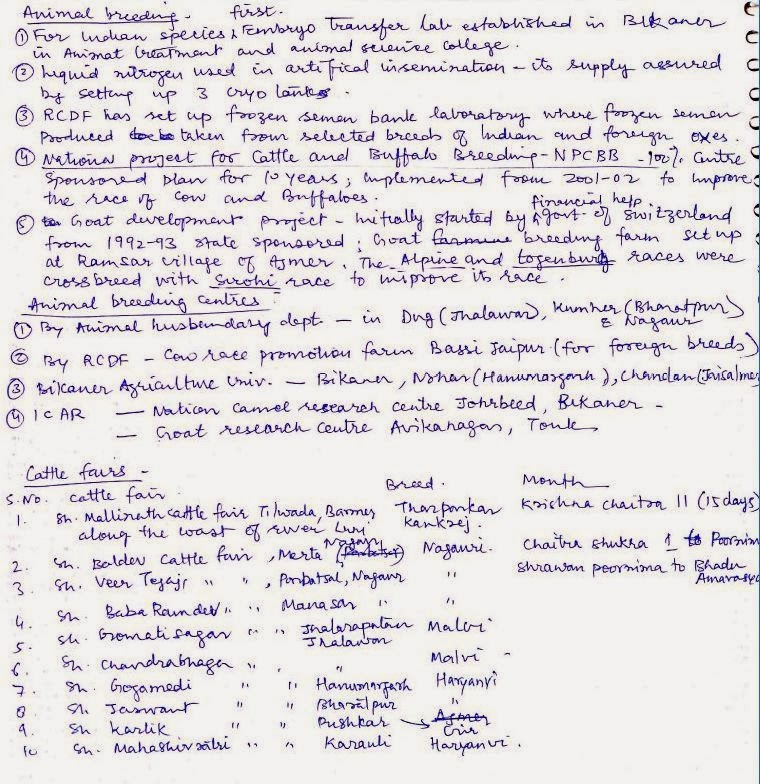 Animal breeding. first.
① For Indian species, Embryo Transfer Lab established in Bikaner
in Animal treatment and animal science college.
② Liquid nitrogen used in artifical insemination - its supply assured
by setting up 3 cryo tanks.
③ RCDF has set up frozen semen bank laboratory where frozen semen
produced taken from selected breeds of Indian and foreign oxes.
④ National project for Cattle and Buffalo Breeding - NPCBB - 100% Centre
sponsored plan for 10 years; implemented from 2001-02 to improve
the race of cow and Buffaloes.
financial help.
⑤ Goat development project - Initially started by govt. of Switzerland
from 1992-93 state sponsored; Goat breeding farm set up
at Ramsar village of Ajmer. The Alpine and togenburg races were
crossbreed with Sirohi race to improve its race.
Animal breeding centres
① By Animal husbandary dept. - in Dug (Jhalawar), Kumher (Bharatpur)
& Nagaur
② By RCDF - Cow race promotion farm Bassi Jaipur (for foreign breeds)
③ Bikaner Agriculture Univ. - Bikaner, Nohar (Hanumangarh), Chandan (Jaisalmer
④ ICAR - Nation camel research centre Johrbeed, Bikaner -
- Goat research centre Avikanagar, Tonk
Cattle fairs -
S.No. cattle fair Breed. Month
1. Sh. Mallinath cattle fair Tilwada, Barmer Tharparkar Krishna chaitra 11 (15 days)
along the coast of river Luni Kankrej.
2. Sh. Baldev Cattle fair, Merta Nagaur Nagauri. Chaitra shukra 1 to Poornima
3. Sh. Veer Tejaji " " , Parbatsar, Nagaur " shrawan poornima to Bhadu
Amavasya
4. Sh. Baba Ramdev " " Manasar " "
5. Sh. Gomatisagar " " Jhalarapatan Malvi
Jhalawar
6. Sh. Chandrabhaga " " " Malvi -
7. Sh. Gogamedi " " Hanumangarh Haryanvi
8 Sh Jaswant " " Bharatpur "
9. Sh Kartik " " Pushkar → Gir
10 Sh. Mahashivratri " " Karauli Haryanvi.